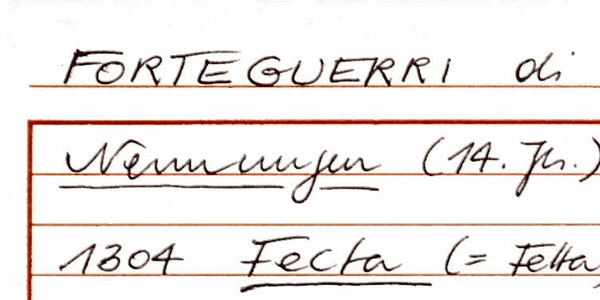 FORTEGUERRI di
Nennungen (14. Jh.)
1304 Fecta (= Fetta)